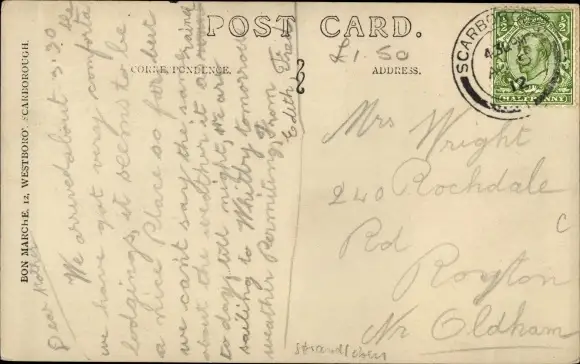 POST CARD.
CORRESPONDENCE.
ADDRESS.
BON MARCHE, 12, WESTBORO' SCARBOROUGH.
Dear Mother
We arrived about 3.30
we have got very comforta
lodgings, it seems to be
a nice Place so far but
we can't say the
about the weather it rained
today till night, we are
sailing to Whitby tomorrow
weather Permitting, From
Edith
Mrs Wright
240 Rochdale
Rd
Royton
Nr Oldham
SCARBORO
12
HALFPENNY